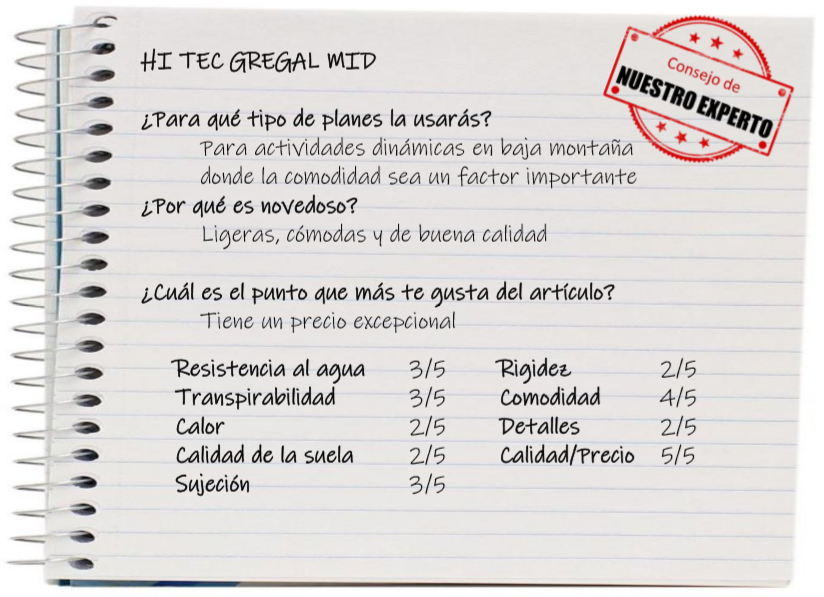 HI TEC GREGAL MID
Consejo de
NUESTRO EXPERTO
¿Para qué tipo de planes la usarás?
Para actividades dinámicas en baja montaña
donde la comodidad sea un factor importante
¿Por qué es novedoso?
Ligeras, cómodas y de buena calidad
¿Cuál es el punto que más te gusta del artículo?
Tiene un precio excepcional
Resistencia al agua 3/5 Rigidez 2/5
Transpirabilidad 3/5 Comodidad 4/5
Calor 2/5 Detalles 2/5
Calidad de la suela 2/5 Calidad/Precio 5/5
Sujeción 3/5